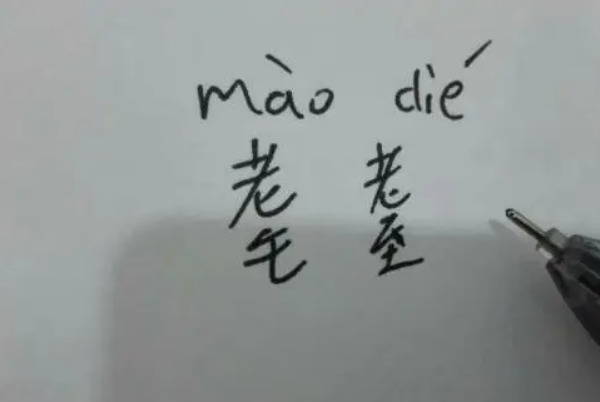 mào dié
耄耋